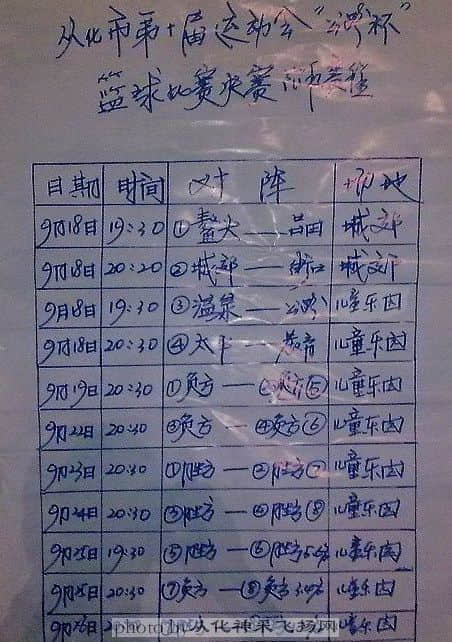 从化市第十届运动会"公路杯"
篮球比赛决赛 赛程
日期 时间 对 阵 场地
9月18日 19:30 ①鳌头——吕田 城郊
9月18日 20:20 ②城郊——街口 城郊
9月18日 19:30 ③温泉——公路 儿童乐园
9月18日 20:30 ④太平——教育 儿童乐园
9月19日 20:30 ①负方——②负方⑤ 儿童乐园
9月22日 20:30 ③负方——④负方⑥ 儿童乐园
9月23日 20:30 ①胜方——②胜方⑦ 儿童乐园
9月24日 20:30 ③胜方——④胜方⑧ 儿童乐园
9月25日 19:30 ⑤胜方——⑥胜方5.6名 儿童乐园
9月25日 20:30 ⑦负方——⑧负方3.4名 儿童乐园
9月26日 儿童乐园
photo by 从化神采飞扬网